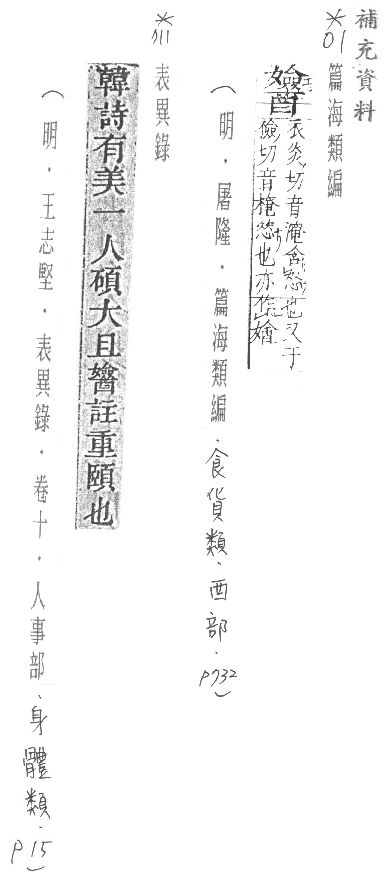 補充資料
*01
篇海類編
𡣪 衣炎切音淹含怒也又于
儉切音掩怒也亦作媕
(明.屠隆.篇海類編.食貨類.酉部.p732)
*111
表異錄
韓詩有美一人碩大且㜝註重頤也
(明.王志堅.表異錄.卷十.人事部.身體類.p15)